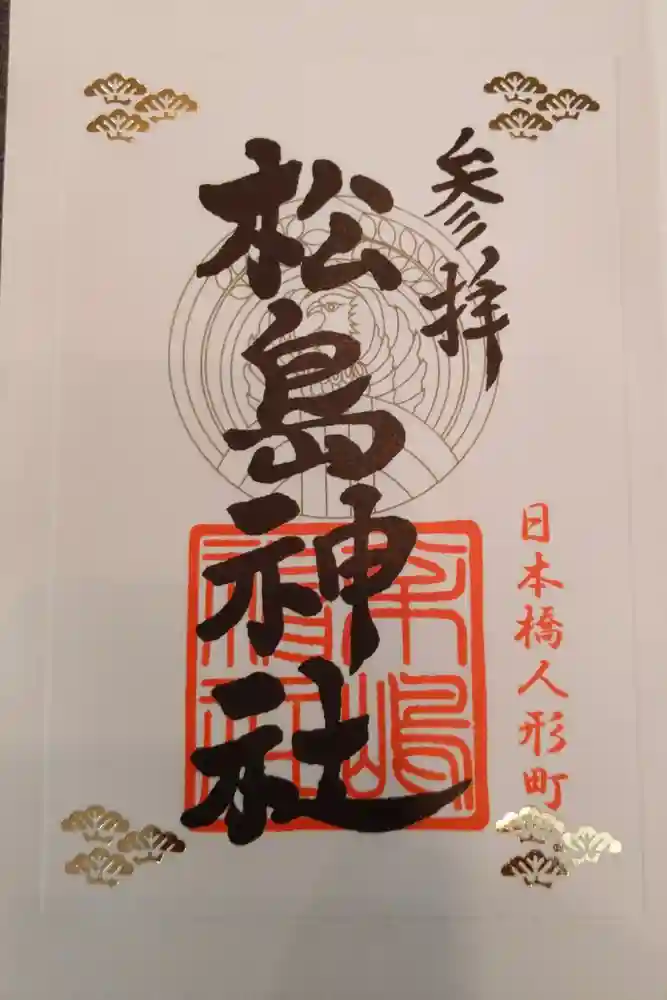 参拝
日本橋人形町
松島神社